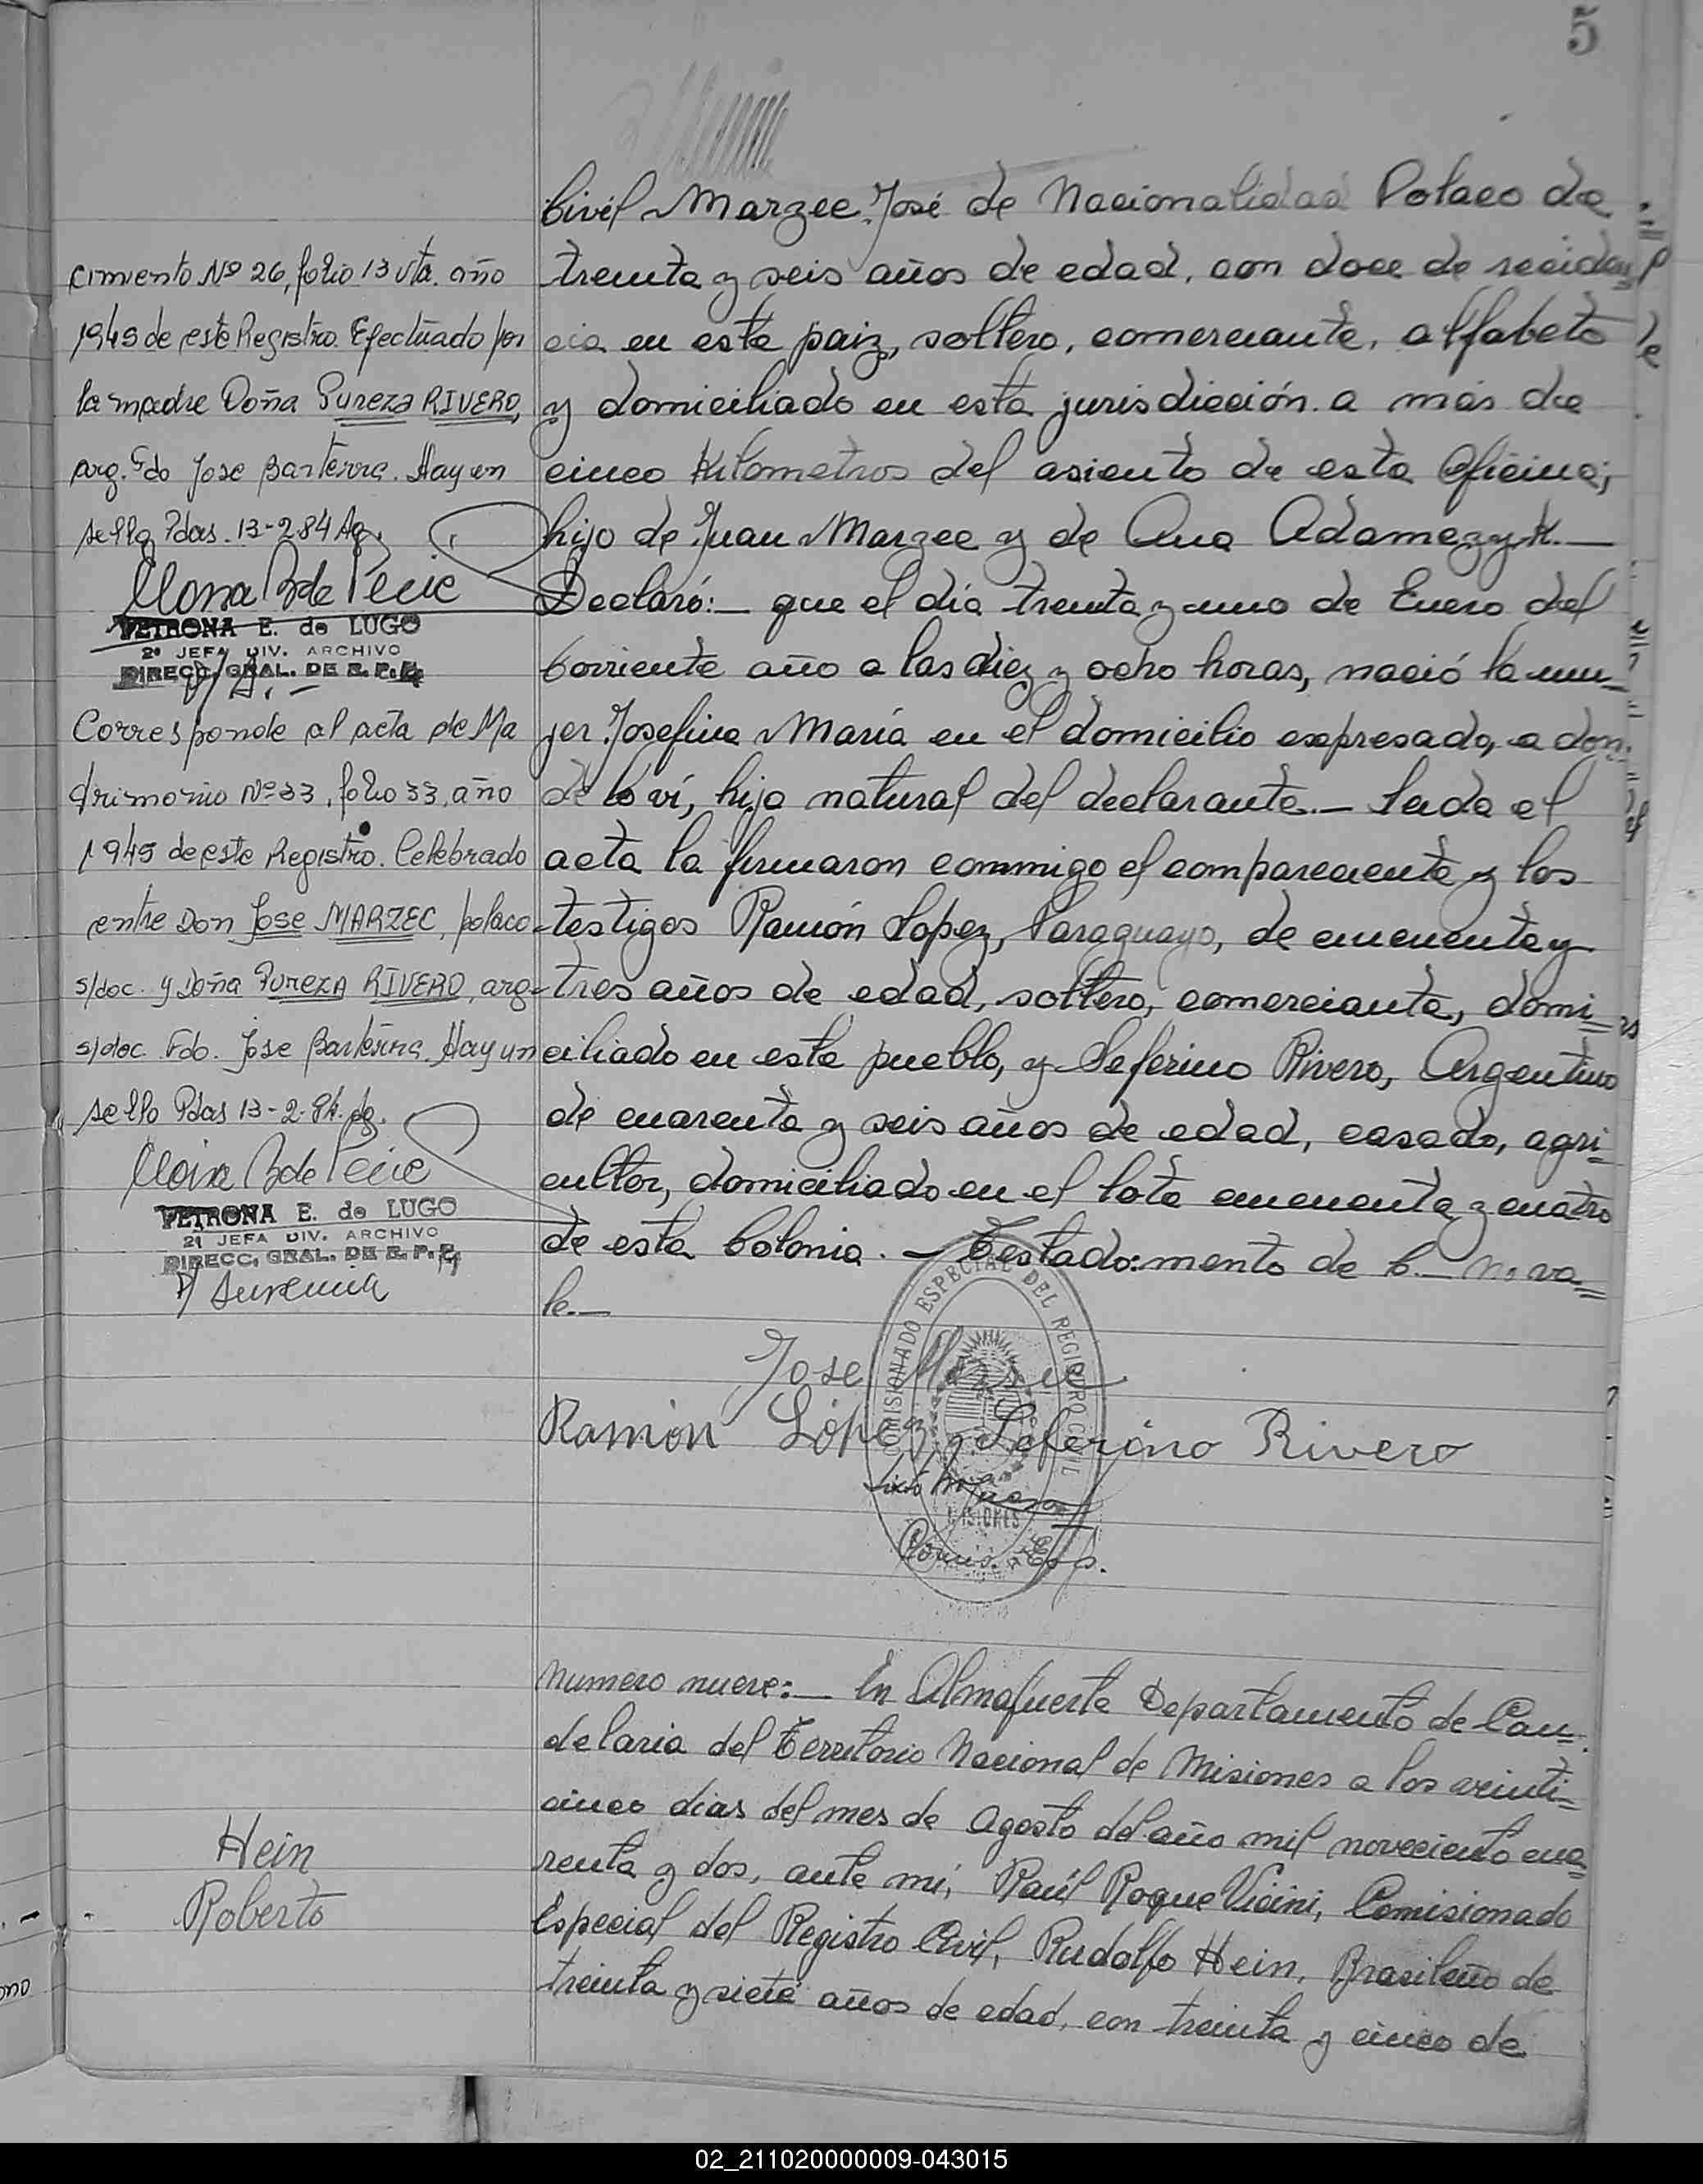 5
cimiento Nº 26, folio 13 vta. año
1945 de este Registro. Efectuado por
la madre Doña Pureza RIVERO,
arg. Fdo Jose Barterra. Hay un
sello Pdas. 13-2-84 Ag.
PETRONA E. de LUGO
2º JEFA DIV. ARCHIVO
DIRECC. GRAL. DE R. P. P.
Corresponde al acta de Ma
trimonio Nº 33, folio 33, año
1945 de este Registro. Celebrado
entre Don Jose MARZEC, polaco
s/doc. y Doña Pureza RIVERO, arg-
s/doc. Fdo. Jose Barterra. Hay un
sello Pdas 13-2-84. Ag.
PETRONA E. de LUGO
2ª JEFA DIV. ARCHIVO
DIRECC. GRAL. DE R. P. P.
Hein
Roberto
Civil Marzec José de Nacionalidad Polaco de
treinta y seis años de edad, con doce de reciden
cia en este paiz, soltero, comerciante, alfabeto
y domiciliado en esta jurisdicción a más de
cinco Kilometros del asiento de esta Oficina;
hijo de Juan Marzec y de Ana Adamezyk.—
Declaró:— que el día treinta y uno de Enero del
corriente año a las diez y ocho horas, nació la mu=
jer Josefina María en el domicilio expresado, a don
de lo ví, hija natural del declarante.— Leida el
acta la firmaron conmigo el compareciente y los
testigos Ramón Lopez, Paraguayo, de cincuenta y
tres años de edad, soltero, comerciante, domi=
ciliado en este pueblo, y Seferino Rivero, Argentino
de cuarenta y seis años de edad, casado, agri=
cultor, domiciliado en el lote cincuenta y cuatro
de esta Colonia.— Testado: mento de C.— no va=
le.—
COMISIONADO ESPECIAL DEL REGISTRO CIVIL
MISIONES
Jose Marzec
Ramón López Seferino Rivero
Comis. Esp.
Numero nueve:— En Almafuerte Departamento de Can=
delaria del Territorio Nacional de Misiones a los veinti=
cinco dias del mes de Agosto del año mil noveciento cua=
renta y dos, ante mí, Raúl Roque Vicini, Comisionado
Especial del Registro Civil, Rudolfo Hein, Brasileño de
treinta y siete años de edad, con treinta y cinco de
02_211020000009-043015